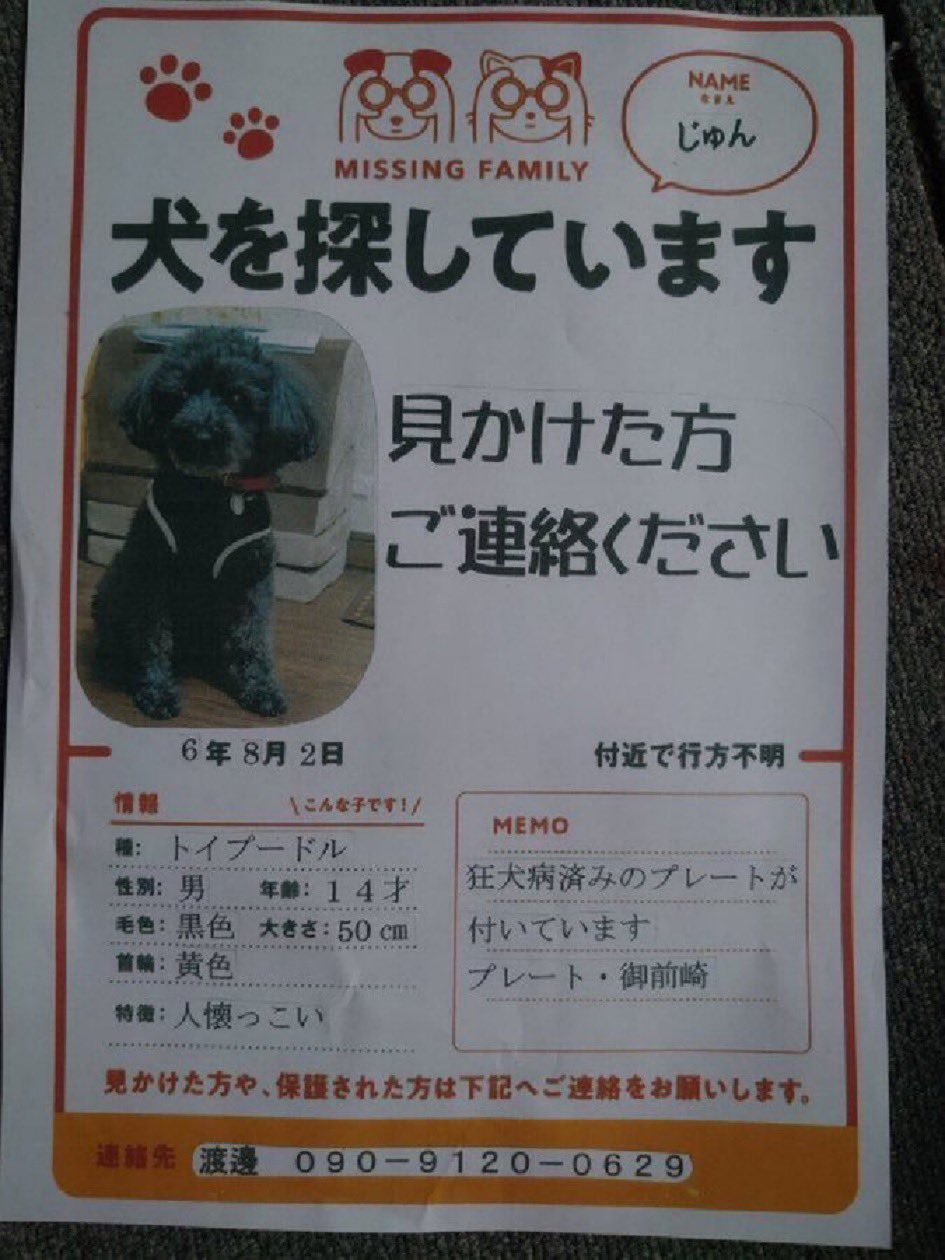 MISSING FAMILY
NAME
なまえ
じゅん
犬を探しています
見かけた方
ご連絡ください
6年 8月 2日
付近で行方不明
情報 \こんな子です!/
種: トイプードル
性別: 男 年齢: 14才
毛色: 黒色 大きさ: 50cm
首輪: 黄色
特徴: 人懐っこい
MEMO
狂犬病済みのプレートが
付いています
プレート・御前崎
見かけた方や、保護された方は下記へご連絡をお願いします。
連絡先 渡邊 090-9120-0629